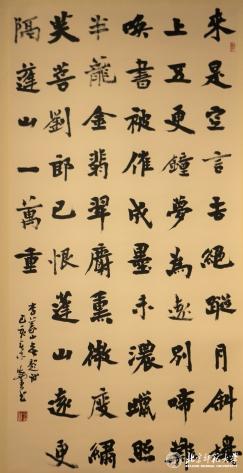 來是空言去絕蹤月斜樓
上五更鐘夢為遠別啼難
喚書被催成墨未濃蠟照
半籠金翡翠麝熏微度繡
芙蓉劉郎已恨蓬山遠更
隔蓬山一萬重
李義山無題詩
己亥
北京师范大学